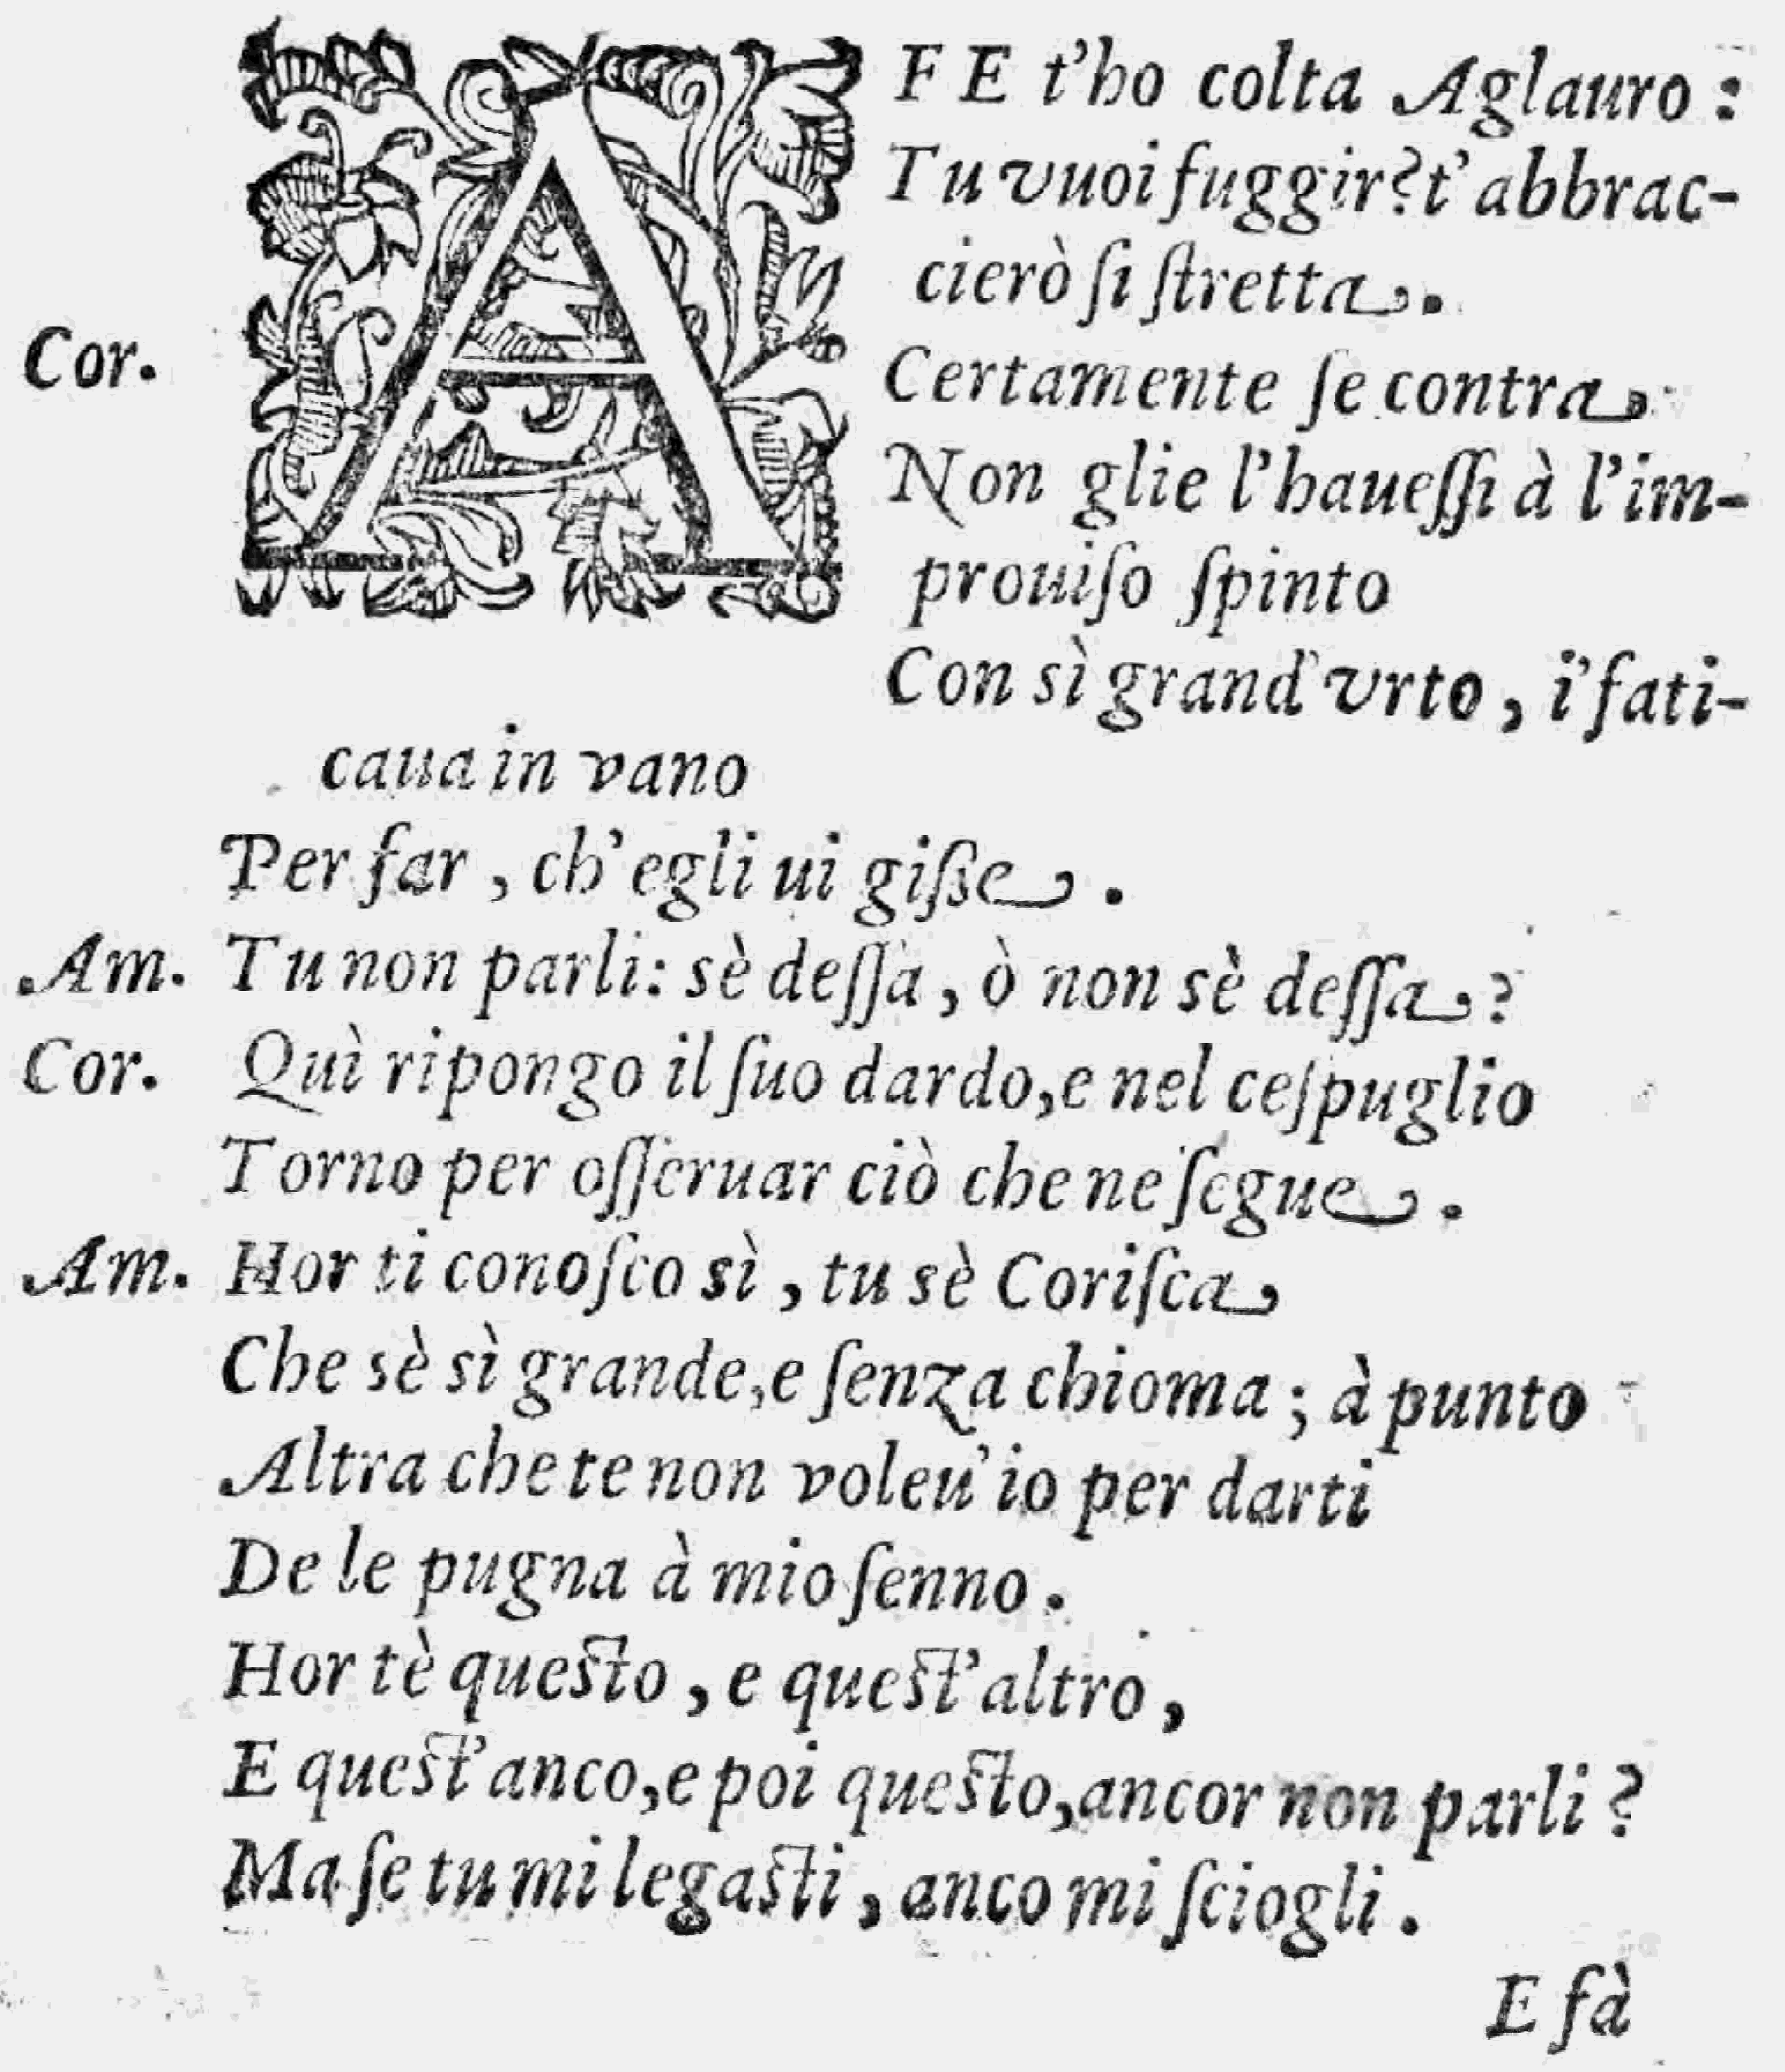 AFE t'ho colta Aglauro:
Tu vuoi fuggir? t'abbrac-
cierò ſi ſtretta.
Cor. Certamente ſe contra
Non glie l'haueſſi à l'im-
prouiſo ſpinto
Con sì grand'vrto, i'fati-
caua in vano
Per far, ch'egli ui giſse.
Am. Tu non parli: sè deſſa, ò non sè deſſa?
Cor. Quì ripongo il ſuo dardo, e nel ceſpuglio
Torno per oſſeruar ciò che ne ſegue.
Am. Hor ti conoſco sì, tu sè Coriſca
Che sè sì grande, e ſenza chioma; à punto
Altra che te non voleu'io per darti
De le pugna à mio ſenno.
Hor tè queſto, e queſt'altro,
E queſt'anco, e poi queſto, ancor non parli?
Ma ſe tu mi legaſti, anco mi ſciogli.
E fà